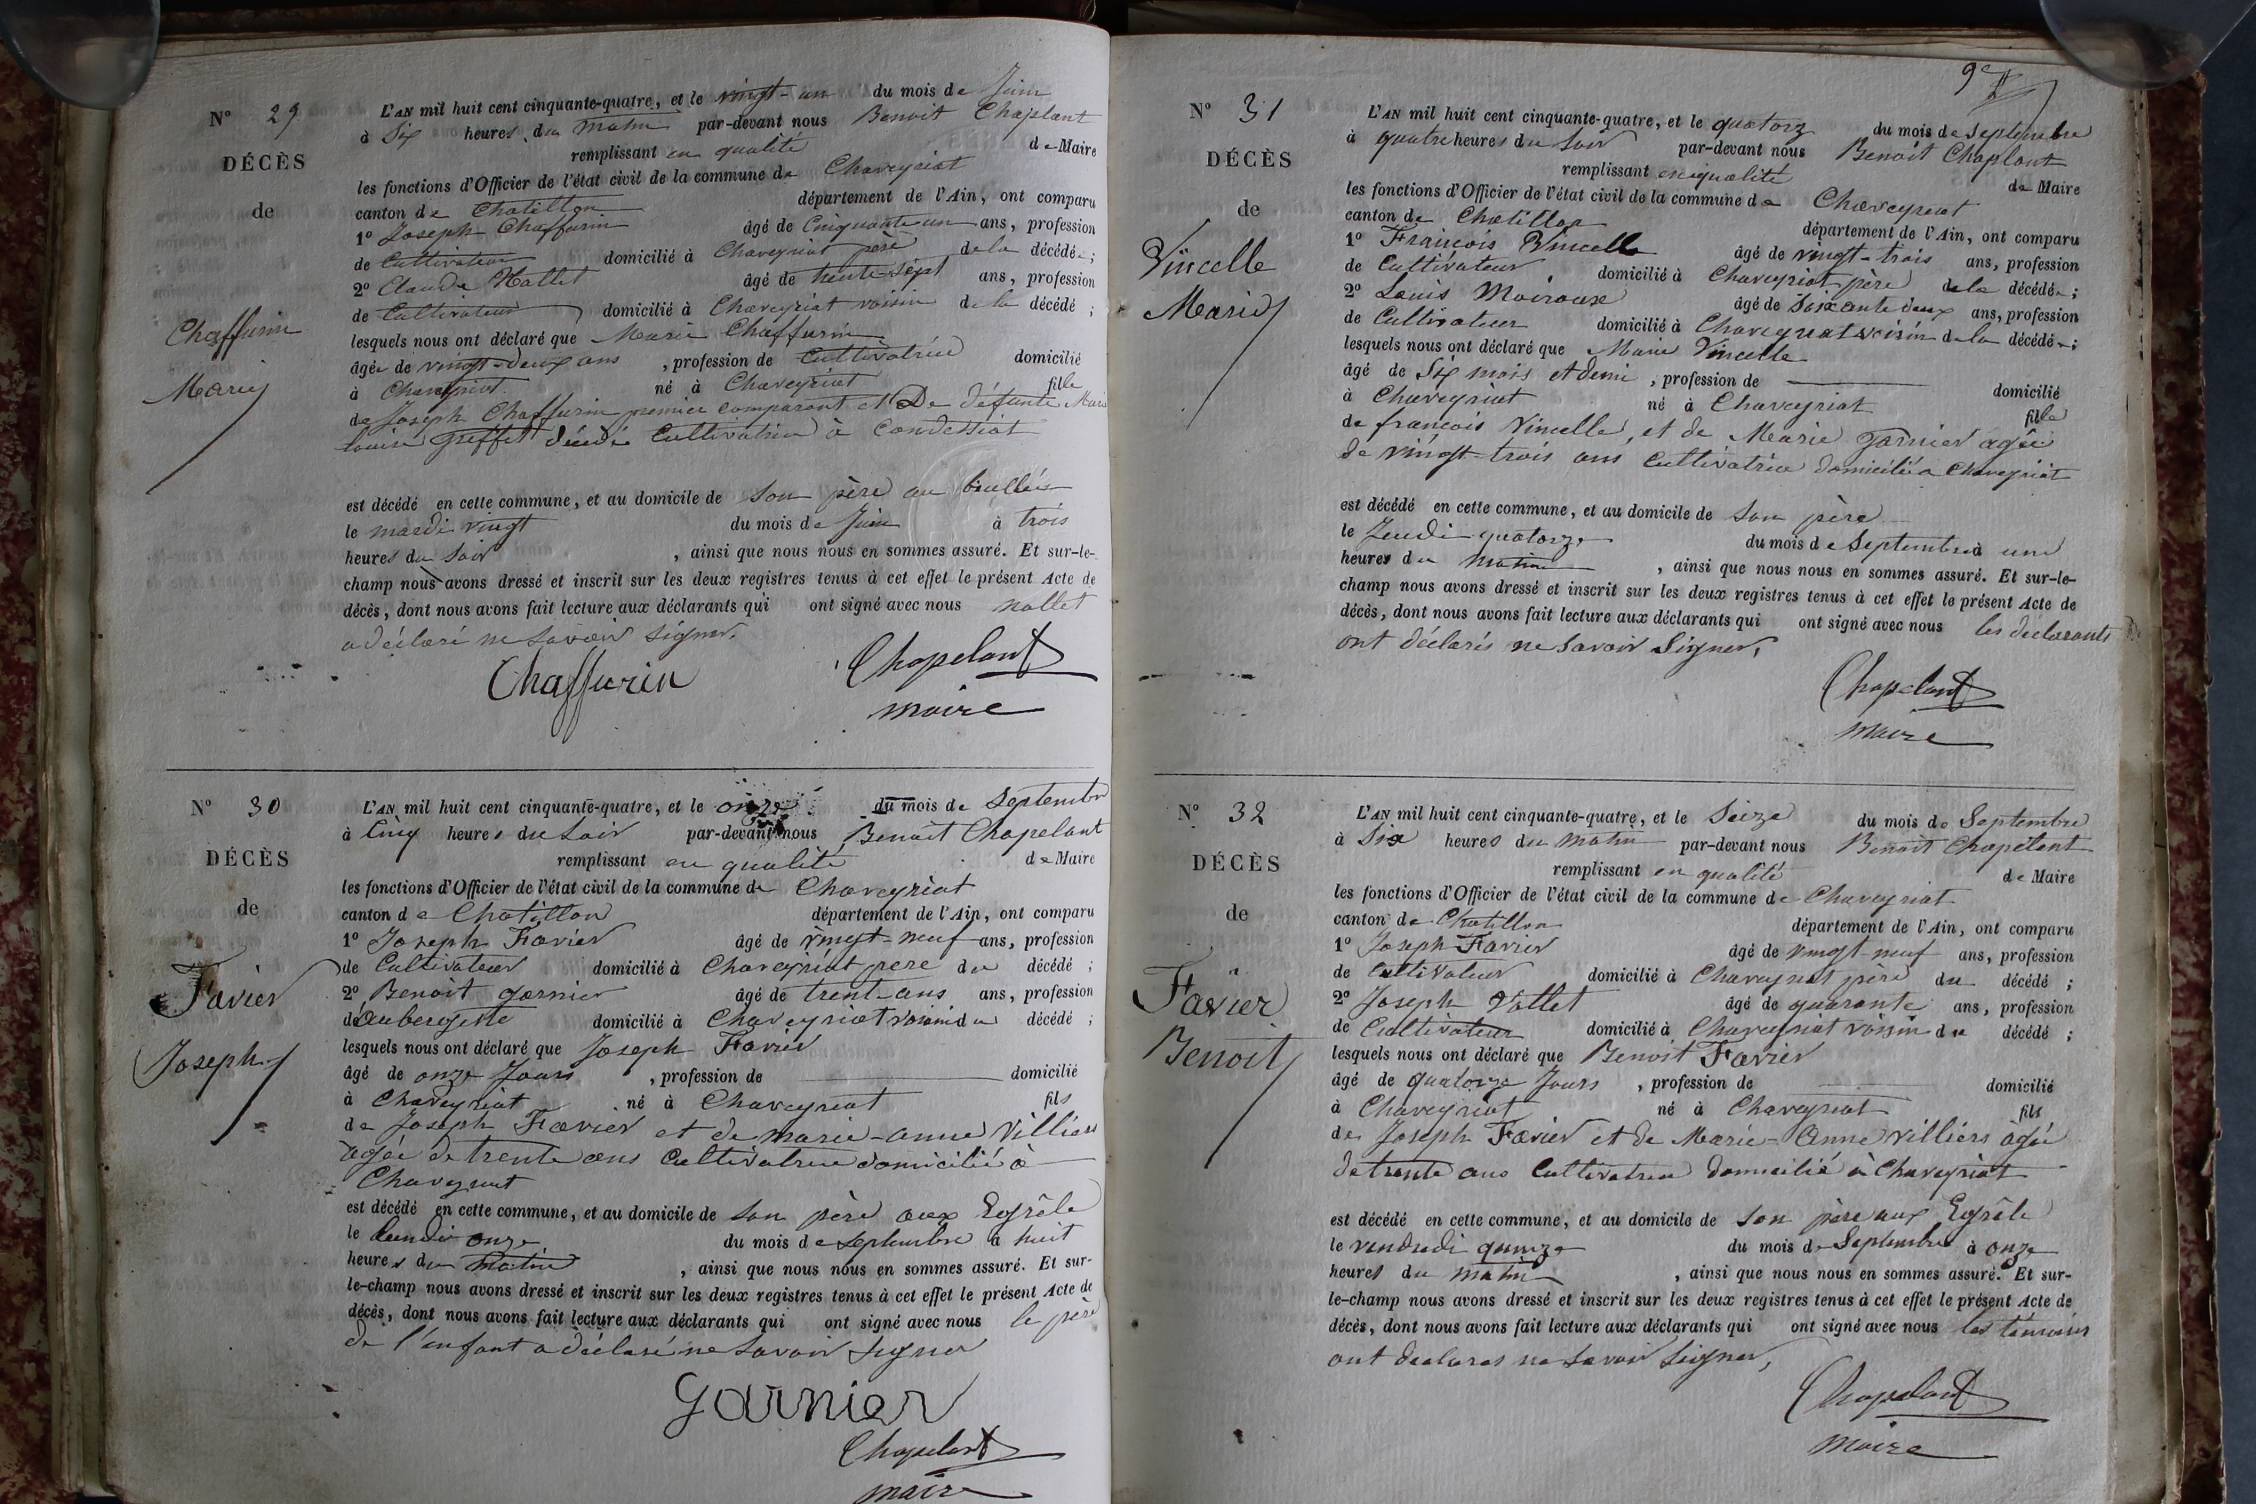 N° 29
DÉCÈS
de
Chaffurin
Marie
L'AN mil huit cent cinquante-quatre, et le vingt-un du mois de Juin
à Six heures du matin par-devant nous Benoit Chapelant
remplissant en qualité de Maire
les fonctions d'Officier de l'état civil de la commune de Chaveyriat
canton de Chatillon département de l'Ain, ont comparu
1° Joseph Chaffurin âgé de Cinquante un ans, profession
de Cultivateur domicilié à Chaveyriat père de la décédée ;
2° Claude Nallet âgé de trente-sept ans, profession
de Cultivateur domicilié à Chaveyriat voisin de la décédé ;
lesquels nous ont déclaré que Marie Chaffurin
âgée de vingt-deux ans , profession de Cultivatrice domicilié
à Chaveyriat né à Chaveyriat fille
de Joseph Chaffurin premier comparant et De défunte Marie
louise Greffet décédé Cultivatrice à Condessiat
est décédé en cette commune, et au domicile de Son père au
le mardi vingt du mois de Juin à trois
heures du Soir , ainsi que nous nous en sommes assuré. Et sur-le-
champ nous avons dressé et inscrit sur les deux registres tenus à cet effet le présent Acte de
décès, dont nous avons fait lecture aux déclarants qui ont signé avec nous Nallet
a déclaré ne Savoir Signer.
Chaffurin Chapelant
maire
N° 30
DÉCÈS
de
Favier
Joseph
L'AN mil huit cent cinquante-quatre, et le onze du mois de Septembre
à Cinq heures du Soir par-devant nous Benoit Chapelant
remplissant en qualité de Maire
les fonctions d'Officier de l'état civil de la commune de Chaveyriat
canton de Chatillon département de l'Ain, ont comparu
1° Joseph Favier âgé de vingt-neuf ans, profession
de Cultivateur domicilié à Chaveyriat pere du décédé ;
2° Benoit garnier âgé de trent-ans ans, profession
de aubergiste domicilié à Chaveyriat voisin du décédé ;
lesquels nous ont déclaré que Joseph Favier
âgé de onze Jours , profession de domicilié
à Chaveyriat né à Chaveyriat fils
de Joseph Favier et de marie-anne Villiers
agée de trente ans Cultivatrice domicilié à
Chaveyriat
est décédé en cette commune, et au domicile de Son père aux Egrêle
le lundi onze du mois de Septembre à huit
heures du Matin , ainsi que nous nous en sommes assuré. Et sur-
le-champ nous avons dressé et inscrit sur les deux registres tenus à cet effet le présent Acte de
décès, dont nous avons fait lecture aux déclarants qui ont signé avec nous le père
de l'enfant a déclaré ne Savoir Signer
garnier
Chapelant
maire
N° 31
DÉCÈS
de
Vincelle
Marie
L'AN mil huit cent cinquante-quatre, et le quatorz du mois de Septembre
à quatre heures du Soir par-devant nous Benoit Chaplant
remplissant en qualité de Maire
les fonctions d'Officier de l'état civil de la commune de Chaveyriat
canton de Chatillon département de l'Ain, ont comparu
1° François Vincelle âgé de vingt-trois ans, profession
de Cultivateur domicilié à Chaveyriat père de la décédée ;
2° Louis Moiroux âgé de Soixante deux ans, profession
de Cultivateur domicilié à Chaveyriat voisin de la décédée ;
lesquels nous ont déclaré que Marie Vincelle
âgé de Six mois et demi , profession de domicilié
à Chaveyriat né à Chaveyriat fille
de françois Vincelle, et de Marie garnier agée
de vingt-trois ans Cultivatrice domicilié a Chaveyriat
est décédé en cette commune, et au domicile de Son père
le Jeudi quatorze du mois de Septembre à une
heures du matin , ainsi que nous nous en sommes assuré. Et sur-le-
champ nous avons dressé et inscrit sur les deux registres tenus à cet effet le présent Acte de
décès, dont nous avons fait lecture aux déclarants qui ont signé avec nous les déclarants
ont déclarés ne Savoir Signer,
Chapelant
maire
N° 32
DÉCÈS
de
Favier
Benoit
L'AN mil huit cent cinquante-quatre, et le Seize du mois de Septembre
à Six heures du matin par-devant nous Benoit Chapelant
remplissant en qualité de Maire
les fonctions d'Officier de l'état civil de la commune de Chaveyriat
canton de Chatillon département de l'Ain, ont comparu
1° Joseph Favier âgé de vingt-neuf ans, profession
de Cultivateur domicilié à Chaveyriat père du décédé ;
2° Joseph Vallet âgé de quarante ans, profession
de Cultivateur domicilié à Chaveyriat voisin du décédé ;
lesquels nous ont déclaré que Benoit Favier
âgé de quatorze Jours , profession de domicilié
à Chaveyriat né à Chaveyriat fils
de Joseph Favier et de Marie-Anne Villiers âgée
de trente ans Cultivatrice domicilié à Chaveyriat
est décédé en cette commune, et au domicile de Son père aux Egrêle
le vendredi quinze du mois de Septembre à onze
heures du matin , ainsi que nous nous en sommes assuré. Et sur-
le-champ nous avons dressé et inscrit sur les deux registres tenus à cet effet le présent Acte de
décès, dont nous avons fait lecture aux déclarants qui ont signé avec nous les témoins
ont déclarés ne Savoir Signer,
Chapelant
maire